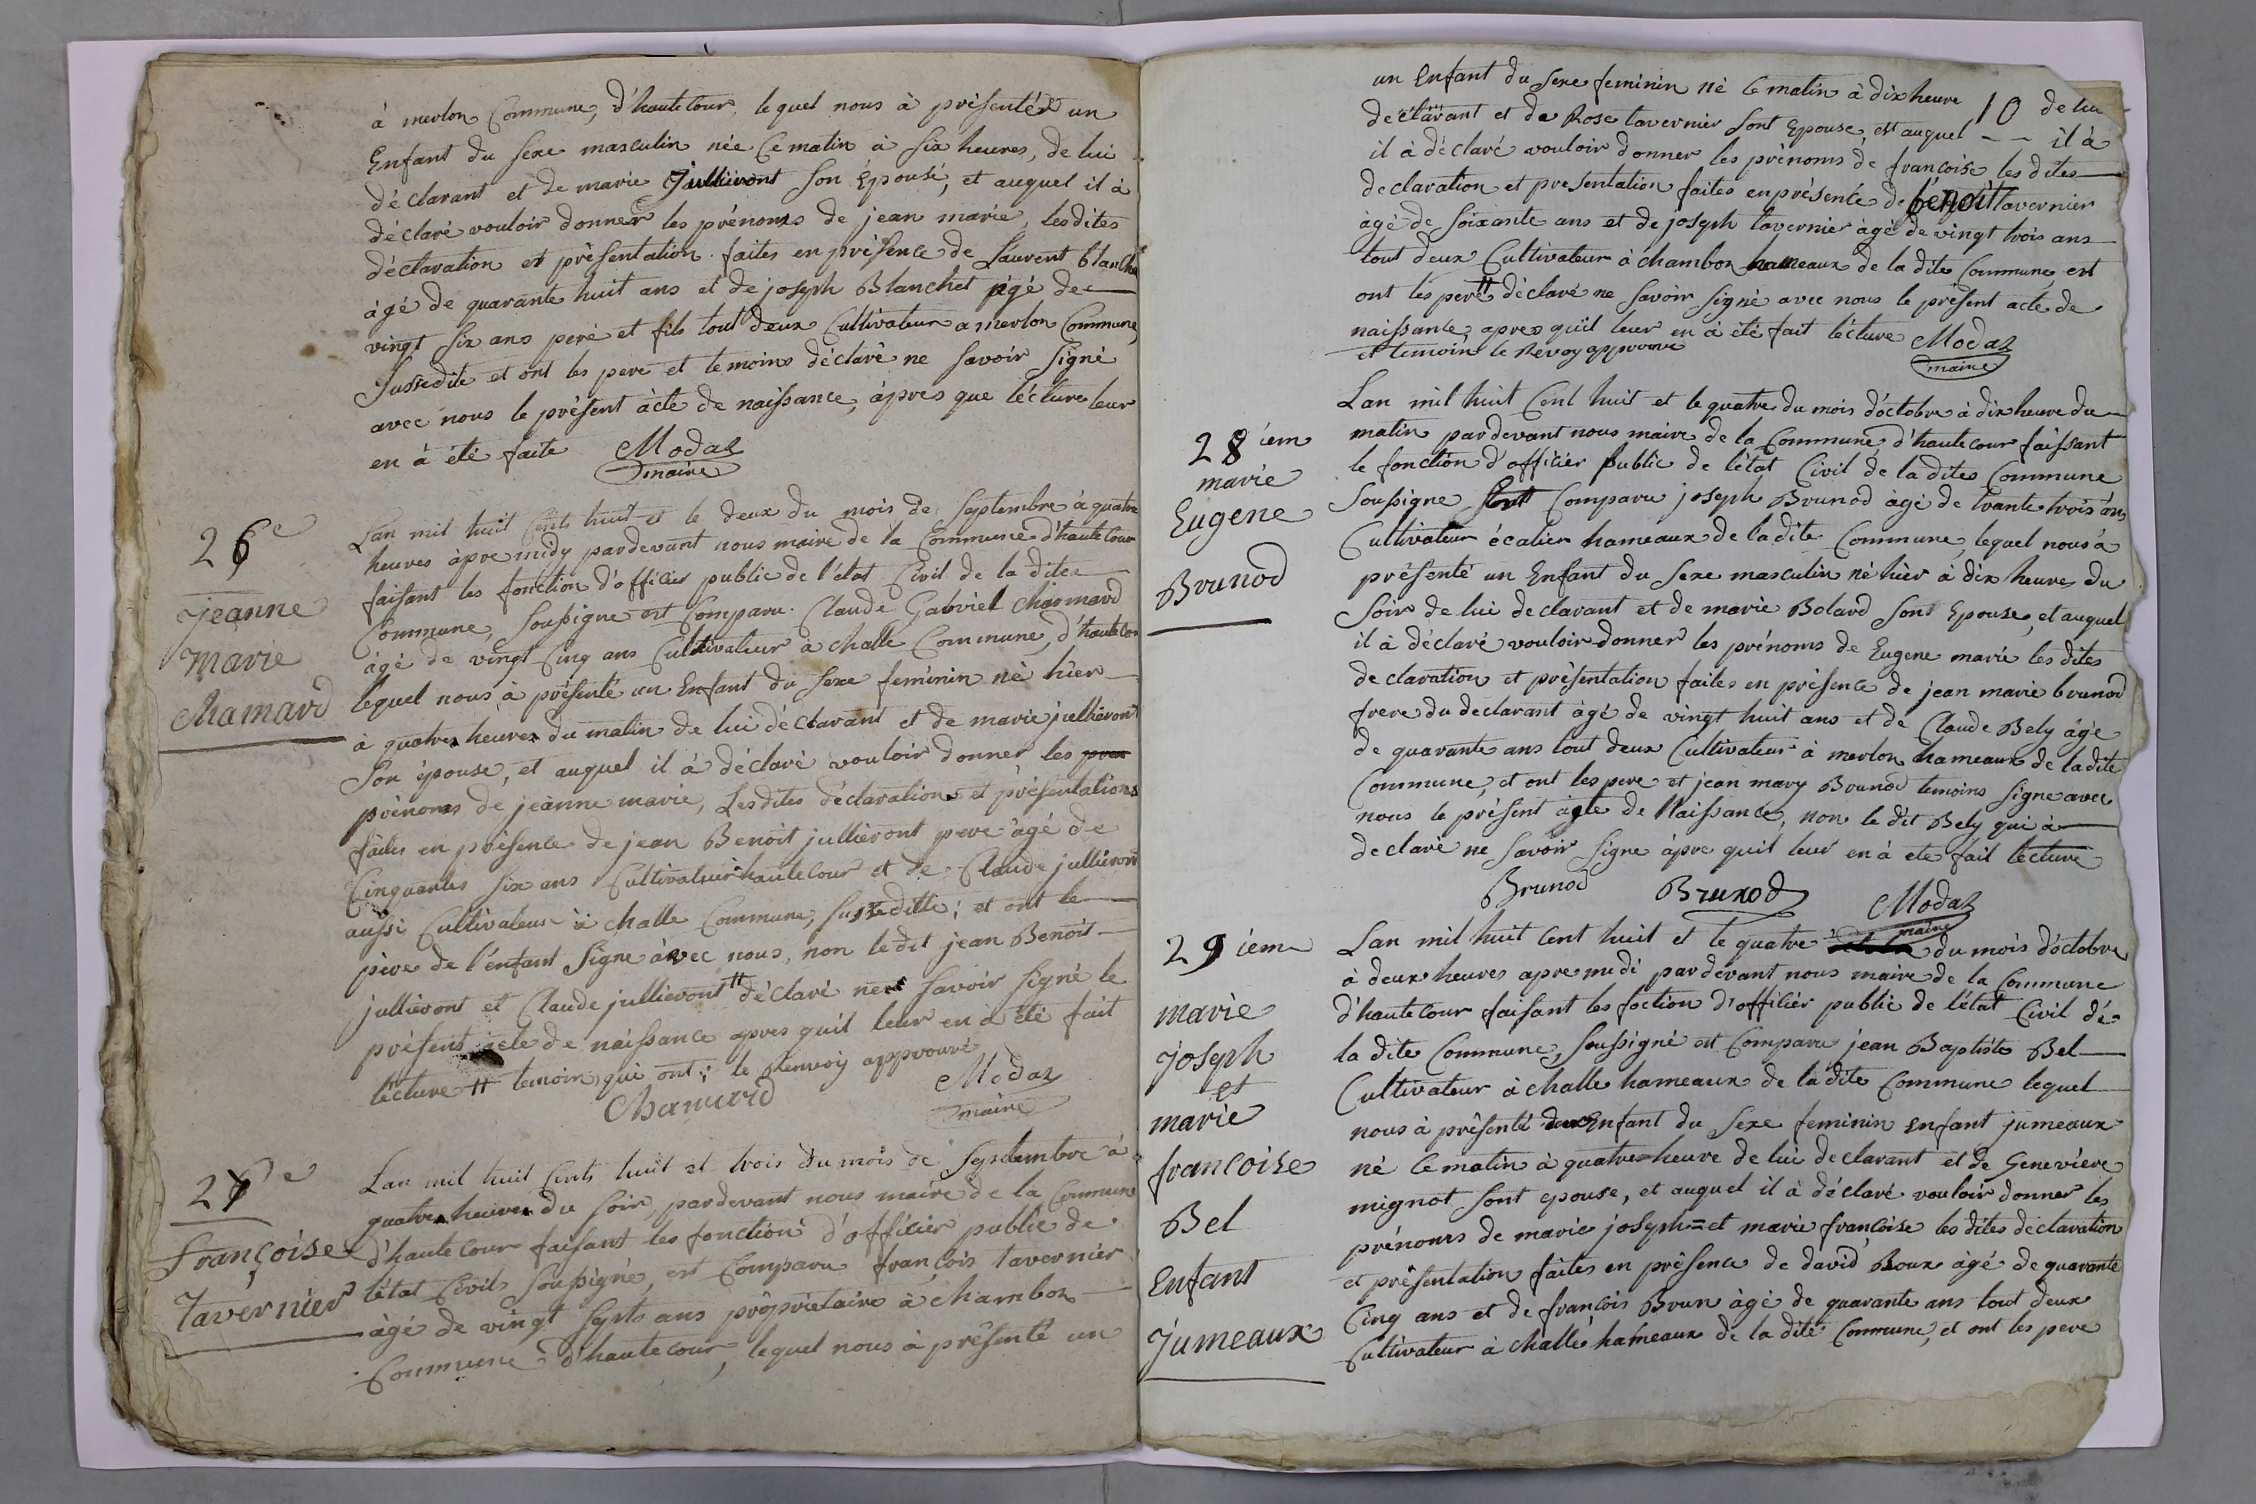 à merlon Commune, d'hautecour lequel nous à présenté un
Enfant du sexe masculin née Cematin à six heures, de lui
déclarant et de marie Jullieront son épousé, et auquel il à
déclaré vouloir donner les prénoms de jean marie, lesdites
déclaration et présentation faites en présence de Laurent blanche
àgé de quarante huit ans et de joseph Blanchet àgé de
vingt six ans peré et fils tout deux Cultivateur a merlon Commune,
sussedite et ont les pere et temoins déclaré ne savoir signé
avec nous le présent àcte de naissance, àpres que lécture leur
en à été faite Modaz
maire
26e
jeanne
marie
chamard
Lan mil huit Cents huit et le deux du mois de Septembre à quatre
heures àpremidy pardevant nous maire de la Commune d'hautecour
faisant les fonction d'officier public de l'état Civil de la dite
Commune, soussigne est Comparu Claude Gabriel charmard
àgé de vingt Cinq ans Cultivateur à challe Commune, d'hautecour
lequel nous à présenté un Enfant du sexe feminin né hier
à quatre heures du matin de lui déclarant et de marie jullieront
son épouse, et auquel il à déclaré vouloir donner les pren
prénoms de jeànne marie, Lesdites déclaration et présentations
faites en présence de jean Benoit jullieront pere âgé de
Cinquantes six ans Cultivateur hautecour et de Claude jullieront
aussi Cultivateur à challe Commune, sussedite; et ont le
père de l'enfant signe àvec nous, non ledit jean Benoit
jullieront et Claude jullieront # déclaré ne savoir signé le
présent acte de naissance apres quil leur en à été fait
lécture # temoin, qui ont; le Renvoy approuvé
Chamard Modaz
maire
27e
françoise
Tavernier
Lan mil huit Cents huit et trois du mois de Septembre à
quatre heures du soir, pardevant nous maire de la Commune
d'hautecour faisant les fonction d'officier public de
létat Civil soussigné, est Comparu françois tavernier
àgé de vingt septs ans propriétaire à chambon
Commune d'hautecour, lequel nous à présenté un
un Enfant du sexe feminin né ce matin à dix heure 10 de lui
declarant et de Rose tavernier sont Epouse, est auquel -- il à
il à déclaré vouloir donner les prénoms de francoise les dites
declaration et presentation faites enprésenté de bénoit tavernier
àgé de soixante ans et de joseph tavernier àgé de vingt trois ans
tout deux Cultivateur à chambon hameaux de la dite Commune, est
ont les peré # déclaré ne savoir signé avec nous le présent acte de
naissance, apres quil leur en à été fait lécture Modaz
et temoin le Revoy approuve maire
28iem
marie
Eugene
Brunod
Lan mil huit Cent huit et le quatre du mois d'octobre à dix heure du
matin pardevant nous maire de la Commune, d'hautecour faissant
le fonction d'officier public de l'état Civil de la dites Commune
soussigne sent Comparu joseph Brunod àgé de trante trois ans
Cultivateur écalier hameaux de la dite Commune, lequel nous à
présenté un Enfant du sexe masculin né hier à dix heures du
soir de lui declarant et de marie Bolard sont Epouse, et auquel
il à déclaré vouloir donner les prénoms de Eugene marie les dites
declaration et présentation faites en présence de jean marie brunod
frere du declarant àgé de vingt huit ans et de Claude Bely àgé
de quarante ans tout deux Cultivateur à merlon hameaux de ladite
Commune, et ont les pere et jean mary Brunod temoins signe avec
nous le présent àcte de Naissance, non le dit Bely qui à
declaré ne savoir signe àpre quil leur en à eté fait lecture
Brunod Brunod Modaz
maire
29iem
marie
joseph
et
marie
francoise
Bel
Enfant
jumeaux
Lan mil huit Cent huit et le quatre du mois d'octobre
à deux heures apremidi pardevant nous maire de la Commune
d'hautecour faisant les foction d'officier public de l'état Civil dé
la dite Commune, soussigné est Comparu jean Baptiste Bel
Cultivateur à challe hameaux de la dite Commune lequel
nous à présenté deux Enfant du sexe feminin enfant jumeaux
né Cematin à quatre heure de lui declarant et de Genevieve
mignot sont epouse, et auquel il à déclaré vouloir donner les
prénoms de marie joseph = et marie francoise les dites declaration
et présentation faites en présence de david Roux àgé de quarante
Cinq ans et de francois Brun àgé de quarante ans tout deux
Cultivateur à challe hameaux de la dite Commune, et ont les pere